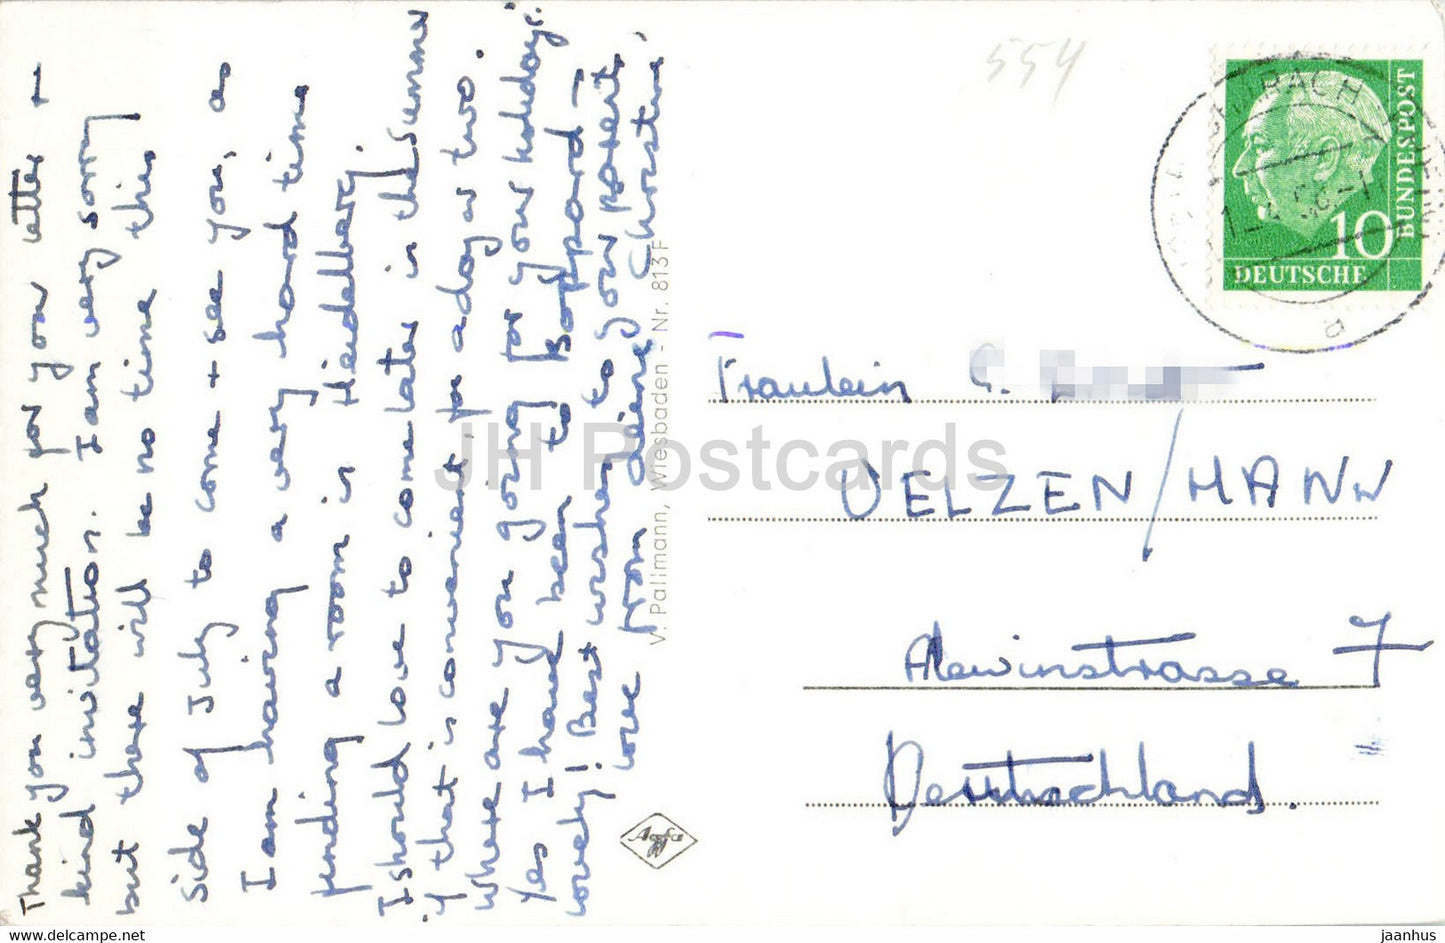 Thank you very much for your letter +
kind invitation. I am very sorry
but there will be no time this
side of July to come + see you, as
I am having a very hard time
finding a room in Heidelberg.
I should love to come later in the summer
if that is convenient, for a day or two.
Where are you going for your holidays.
Yes I have been to Boppard –
lovely! Best wishes to your parents,
love from Christine
V. Pallmann, Wiesbaden - Nr. 813 F
Agfa
554
10
DEUTSCHE
BUNDESPOST
Fräulein G.
UELZEN / HANN
Alewinstrasse 7
Deutschland.
JH Postcards
www.delcampe.net
jaanhus